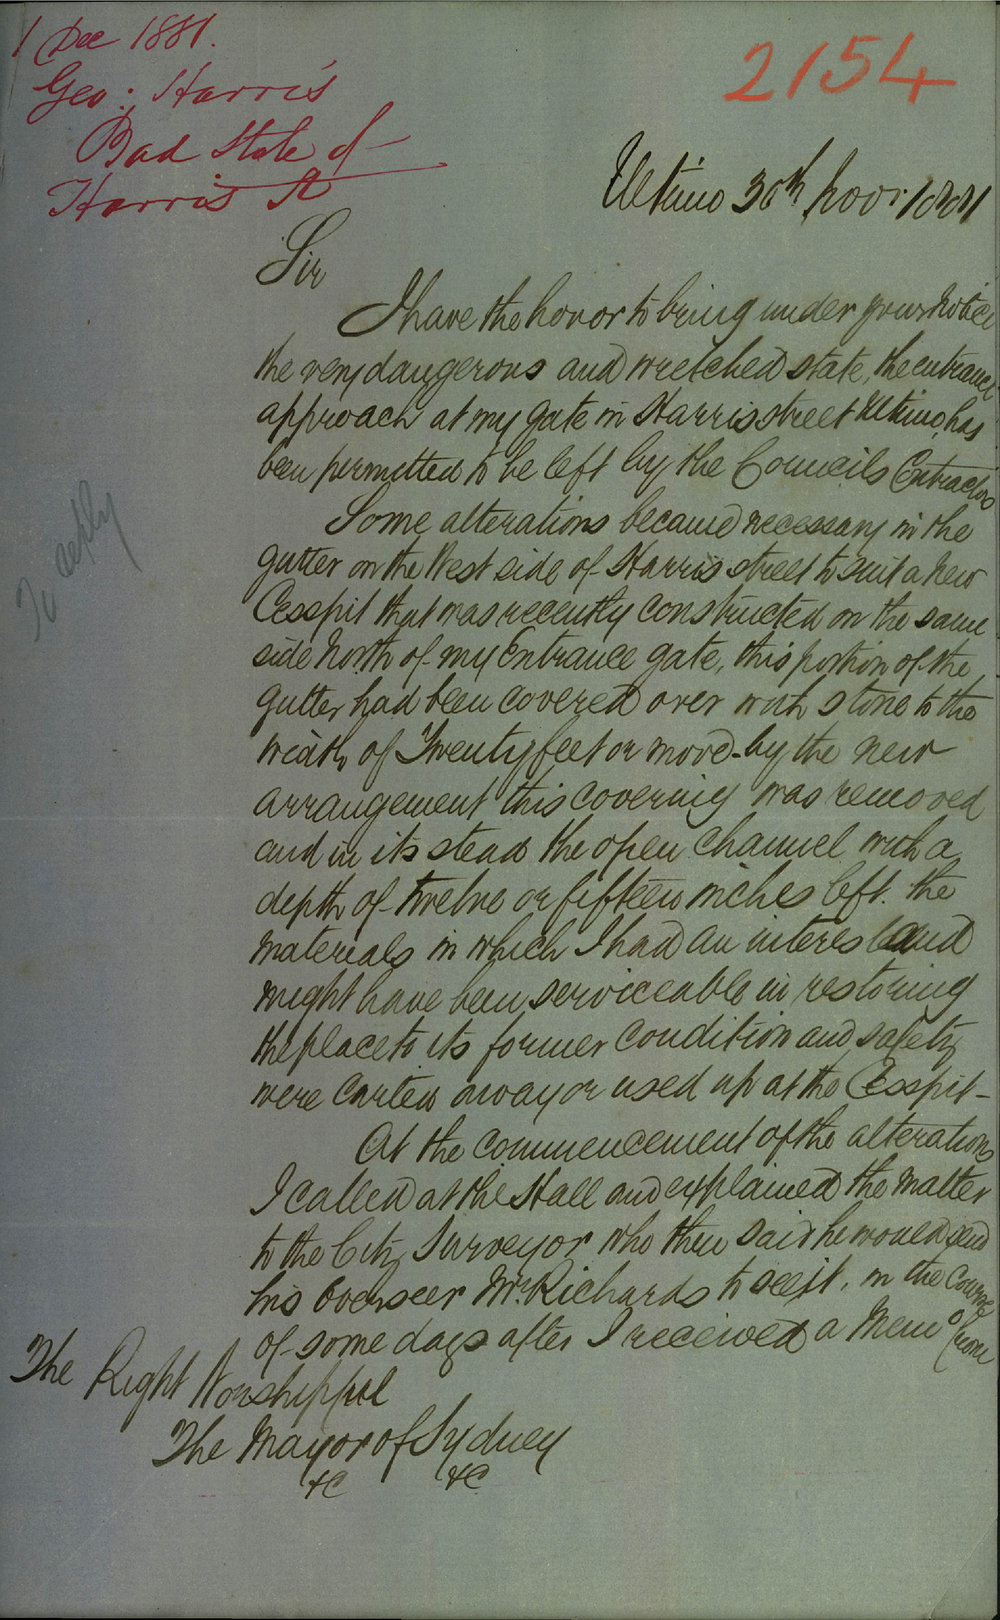 1 Dec 1881.
Geo: Harris
Bad State of
Harris St
2154
Ultimo 30th Novr 1881
Sir
I have the honor to bring under your Notice
the very dangerous and wretched state, the entrance
approach at my gate in Harris street Ultimo, has
been permitted to be left by the Councils Contractors
Some alterations became necessary in the
gutter on the West side of Harris street to suit a new
Cesspit that was recently constructed on the same
side North of my Entrance gate, this portion of the
gutter had been covered over with stone to the
width of Twenty feet or more - by the new
arrangement this covering was removed
and in its stead the open channel with a
depth of twelve or fifteen inches left. the
materials in which I had an interest and
might have been serviceable in restoring
the place to its former condition and safety
were carted away or used up at the Cesspit -
At the commencement of the alterations
I called at the Hall and explained the matter
to the City Surveyor who then said he would send
his Overseer Mr. Richards to see it, in the course
of some days after I received a Memo from
The Right Worshipful
The Mayor of Sydney
&C &C